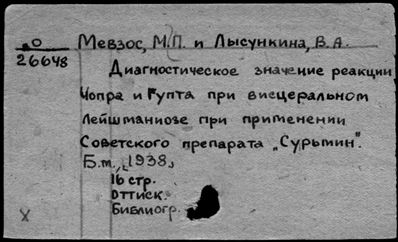 О
26648
Мевзос, М.П. и Лысункина, В.А.
Диагностическое значение реакции
Чопра и Гупта при висцеральном
лейшманиозе при применении
Советского препарата „Сурьмин".
Б.м., 1938,
16 стр.
Оттиск.
Библиогр.
X